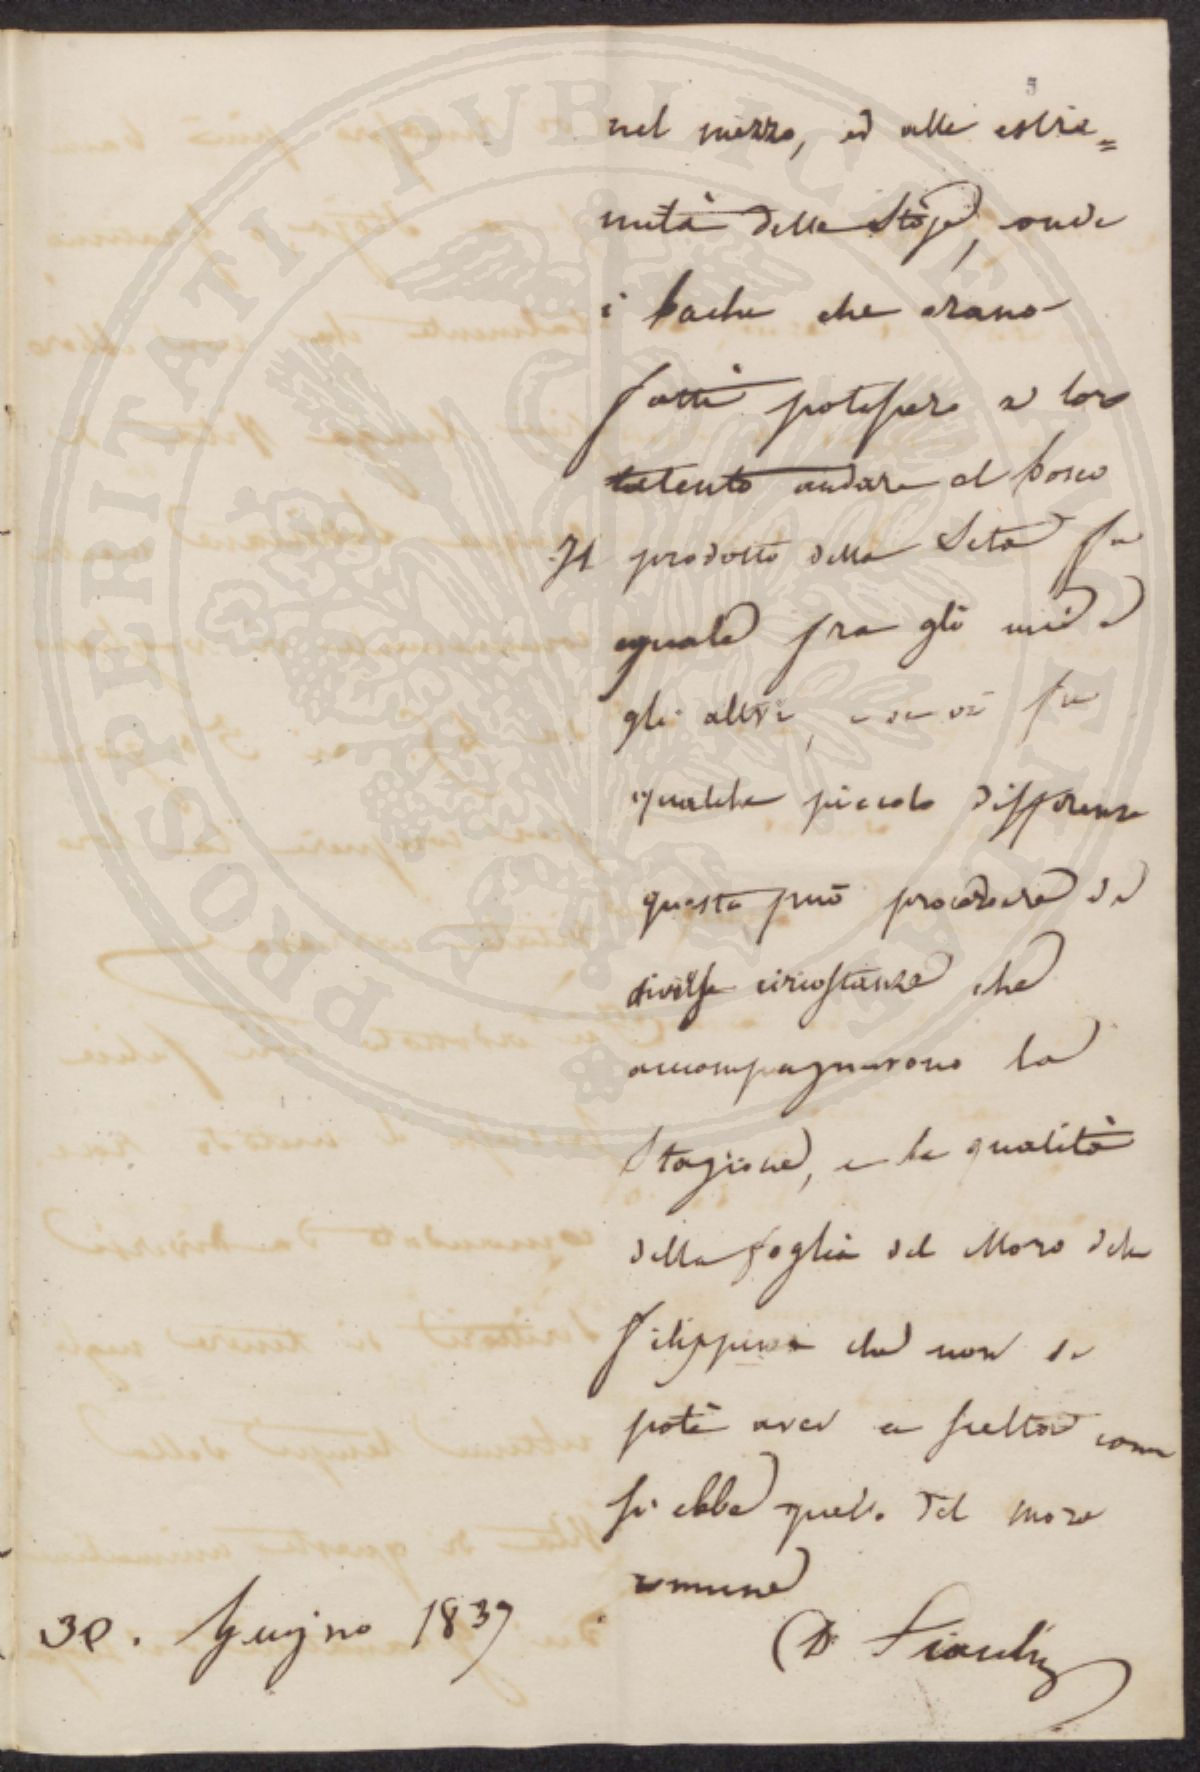 5
nel mezzo, ed alle estre=
mità delle Stoje, onde
i bachi che erano
fatti potessero a loro
talento andare al bosco
Il prodotto della Seta fu
eguale fra gli uni e
gli altri, e se vi fu
qualche piccola differenza
questa può procedere da
diverse circostanze che
accompagnarono la
Stagione, e la qualità
della foglia del Moro delle
Filippine che non si
potè aver a scelta come
si ebbe quella del moro
comune
30. Giugno 1839
D.
PROSPERITATI PVBLICAE